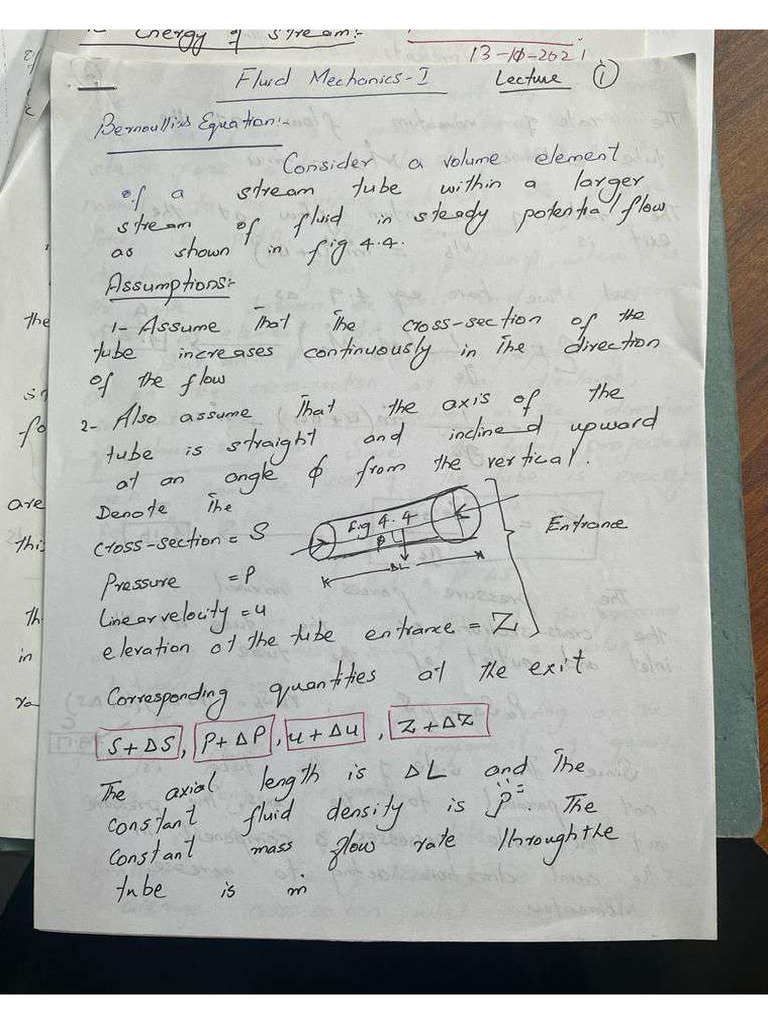 Energy of stream:-
13-10-2021
Fluid Mechanics-I
Lecture 1
Bernoulli's Equation:-
Consider a volume element
of a stream tube within a larger
stream of fluid in steady potential flow
as shown in fig 4.4.
Assumptions:-
1- Assume That The cross-section of the
tube increases continuously in The direction
of the flow
2- Also assume That the axis of the
tube is straight and inclined upward
at an angle ϕ from the vertical.
Denote The
cross-section = S
fig 4.4
ϕ
ΔL
Entrance
Pressure = P
Linear velocity = u
elevation of the tube entrance = Z
Corresponding quantities at the exit
S+ΔS, P+ΔP, u+Δu, Z+ΔZ
The axial length is ΔL and The
constant fluid density is "ρ" The
constant mass flow rate Through the
tube is ṁ
the
fo
are
this
th
in